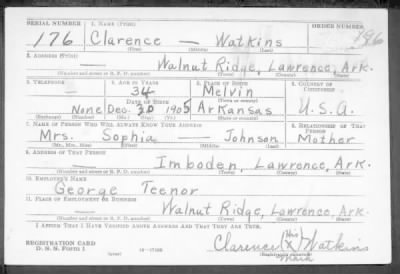 SERIAL NUMBER 1. NAME (Print) ORDER NUMBER
176 Clarence — Watkins 196
(First) (Middle) (Last)
2. ADDRESS (Print)
Walnut Ridge, Lawrence, Ark.
(Number and street or R. F. D. number) (Town) (County) (State)
3. TELEPHONE 4. AGE IN YEARS 5. PLACE OF BIRTH 6. COUNTRY OF CITIZENSHIP
— 34 Melvin
DATE OF BIRTH (Town or county)
None Dec. 20 1905 Arkansas U.S.A.
(Exchange) (Number) (Mo.) (Day) (Yr.) (State or country)
7. NAME OF PERSON WHO WILL ALWAYS KNOW YOUR ADDRESS 8. RELATIONSHIP OF THAT PERSON
Mrs. Sophia Johnson Mother
(Mr., Mrs., Miss) (First) (Middle) (Last)
9. ADDRESS OF THAT PERSON
Imboden, Lawrence, Ark.
(Number and street or R. F. D. number) (Town) (County) (State)
10. EMPLOYER'S NAME
George Teenor
11. PLACE OF EMPLOYMENT OR BUSINESS
Walnut Ridge, Lawrence, Ark.
(Number and street or R. F. D. number) (Town) (County) (State)
I AFFIRM THAT I HAVE VERIFIED ABOVE ANSWERS AND THAT THEY ARE TRUE.
REGISTRATION CARD Clarence (His X) Watkins
D. S. S. Form 1 (over) mark